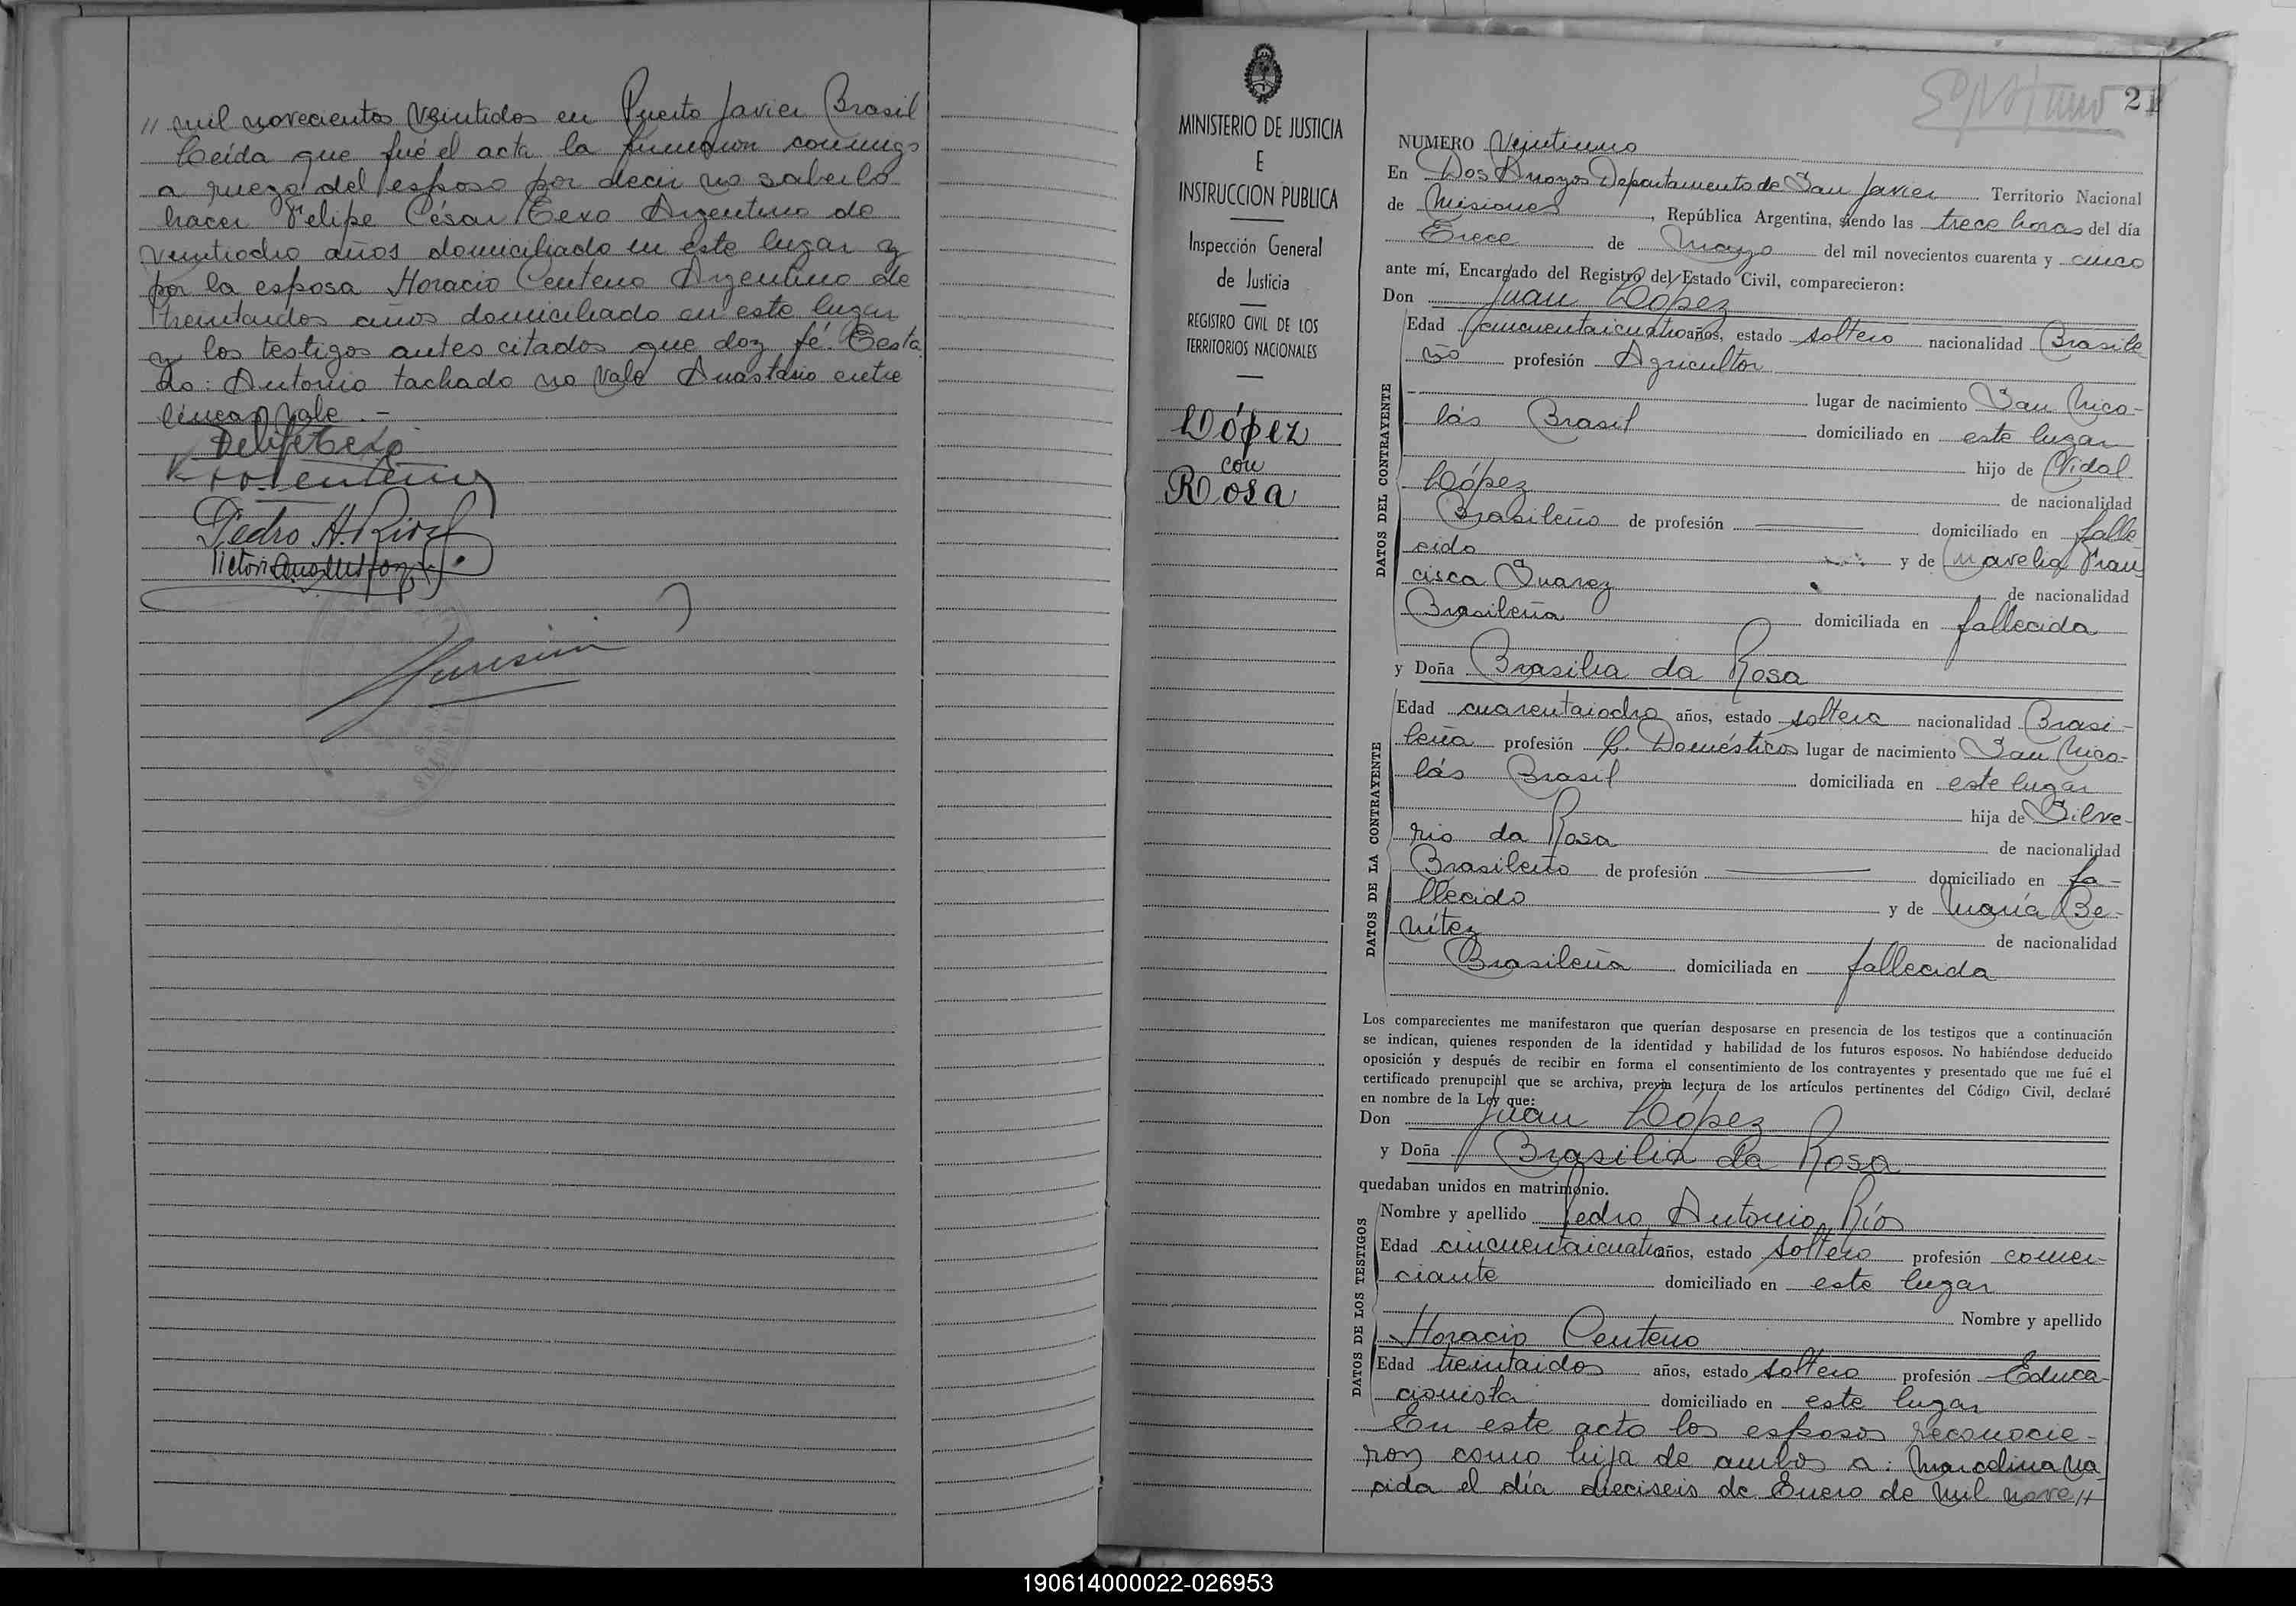 // mil novecientos veintidos en Puerto Javier Brasil
Leída que fué el acta la firmaron conmigo
a ruego del esposo por decir no saberlo
hacer Felipe César Texo Argentino de
veintiocho años domiciliado en este lugar y
por la esposa Horacio Centeno Argentino de
treintaidos anos domiciliado en este lugar
y los testigos antes citados que doy fé. Testa
do: Antonio tachado no vale Anastasio entre
lineas vale.-
Pedro A. Rios
MINISTERIO DE JUSTICIA
E
INSTRUCCION PUBLICA
Inspección General
de Justicia
REGISTRO CIVIL DE LOS
TERRITORIOS NACIONALES
López
con
Rosa
21
NUMERO Veintiuno
En Dos Arroyos Departamento de San Javier Territorio Nacional
de Misiones, República Argentina, siendo las trece horas del día
Trece de Mayo del mil novecientos cuarenta y cinco
ante mí, Encargado del Registro del Estado Civil, comparecieron:
Don Juan López
DATOS DEL CONTRAYENTE
Edad cincuentaicuatro años, estado soltero nacionalidad Brasile
ño profesión Agricultor
lugar de nacimiento San Nico-
lás Brasil domiciliado en este lugar
hijo de Vidal
López de nacionalidad
Brasileño de profesión domiciliado en falle
cido y de Fran
cisca Suarez de nacionalidad
Brasileña domiciliada en fallecida
y Doña Brasilia da Rosa
DATOS DE LA CONTRAYENTE
Edad cuarentaiocho años, estado soltera nacionalidad Brasi-
leña profesión Q. Domésticos lugar de nacimiento San Nico-
lás Brasil domiciliada en este lugar
hija de Silve-
rio da Rosa de nacionalidad
Brasileño de profesión domiciliado en fa-
llecido y de María Be-
nítez de nacionalidad
Brasileña domiciliada en fallecida
Los comparecientes me manifestaron que querían desposarse en presencia de los testigos que a continuación
se indican, quienes responden de la identidad y habilidad de los futuros esposos. No habiéndose deducido
oposición y después de recibir en forma el consentimiento de los contrayentes y presentado que me fué el
certificado prenupcial que se archiva, previa lectura de los artículos pertinentes del Código Civil, declaré
en nombre de la Ley que:
Don Juan López
y Doña Brasilia da Rosa
quedaban unidos en matrimonio.
DATOS DE LOS TESTIGOS
Nombre y apellido Pedro Antonio Ríos
Edad cincuentaicuatro años, estado soltero profesión comer-
ciante domiciliado en este lugar
Nombre y apellido
Horacio Centeno
Edad treintaidos años, estado soltero profesión Educa
cionista domiciliado en este lugar
En este acto los esposos reconocie-
ron como hija de ambos a: Marcelina na
cida el día dieciseis de Enero de mil nove//
190614000022-026953